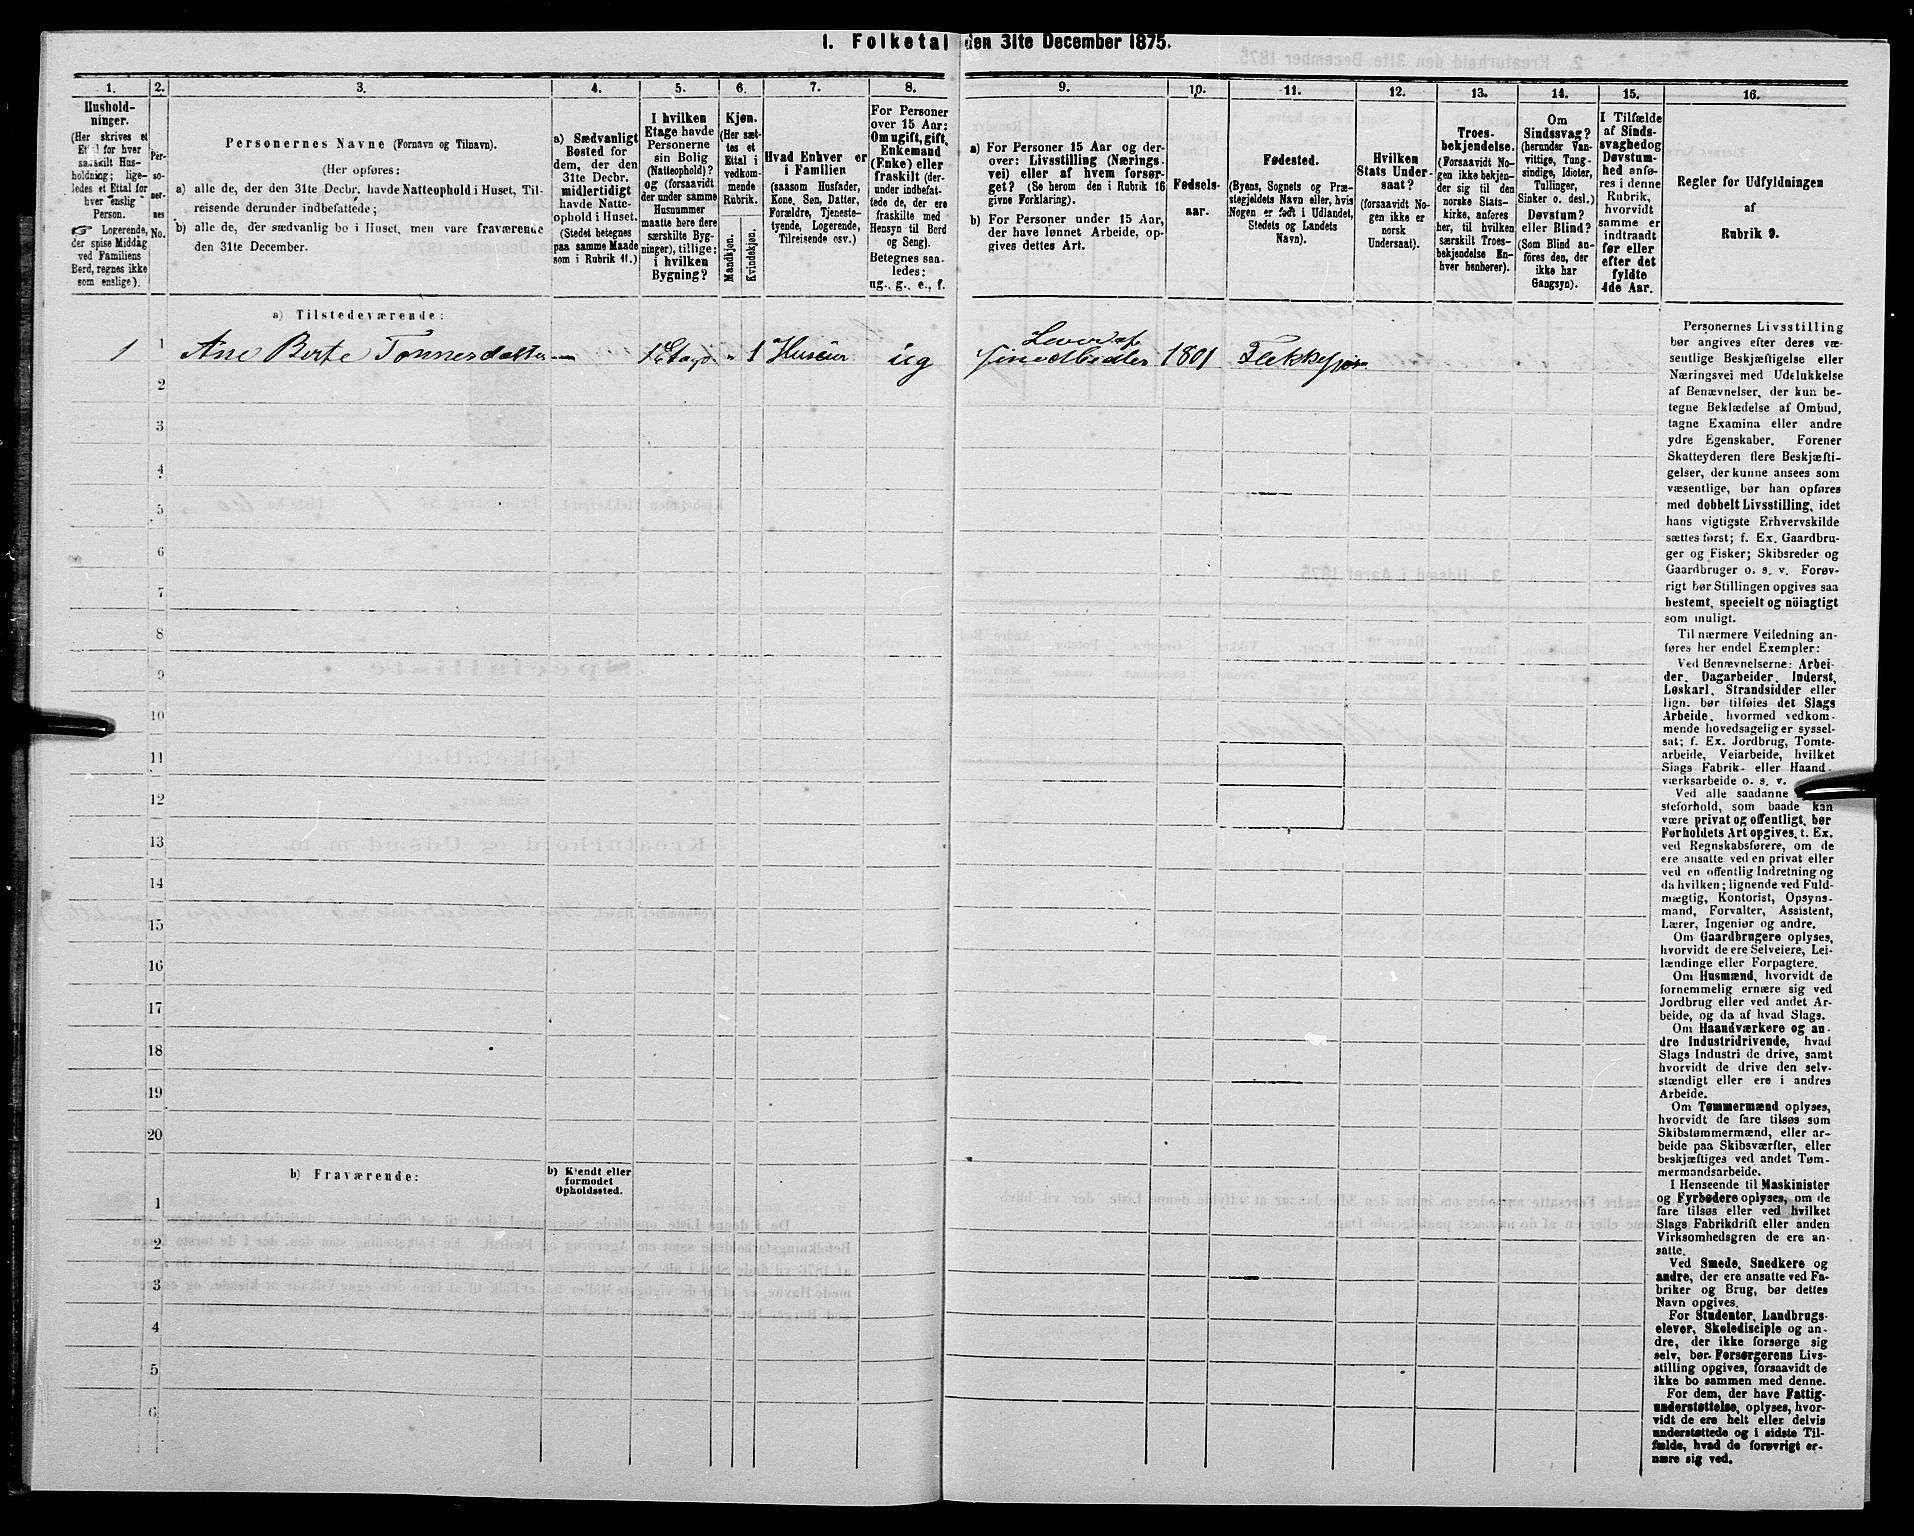 1. Folketal den 31te December 1875.
1. 2. 3. 4. 5. 6. 7. 8. 9. 10. 11. 12. 13. 14. 15. 16.
Hushold-
ninger.
(Her skrives et
Ettal for hver
særskilt Hus-
holdning; lige-
ledes et Ettal for
hver enslig
Person.
☞ Logerende,
der spise Middag
ved Familiens
Berd, regnes ikke
som enslige).
Per-
so-
ner-
nes
No.
Personernes Navne (Fornavn og Tilnavn).
(Her opføres:
a) alle de, der den 31te Decbr. havde Natteophold i Huset, Til-
reisende derunder indbefattede;
b) alle de, der sædvanlig bo i Huset, men vare fraværende
den 31te December.
a) Sædvanligt
Bosted for
dem, der den
31te Decbr.
midlertidigt
havde Natte-
ophold i Huset.
(Stedet betegnes
paa samme Maade
som i Rubrik 11.)
I hvilken
Etage havde
Personerne
sin Bolig
(Natteophold)?
og (forsaavidt
der under samme
Husnummer
maatte høre flere
særskilte Byg-
ninger), tillige:
i hvilken
Bygning?
Kjøn.
(Her sæt-
tes et
Ettal i
vedkom-
mende
Rubrik.
Mandkjøn.
Kvindekjøn.
Hvad Enhver er
i Familien
(saasom Husfader,
Kone, Søn, Datter,
Forældre, Tjeneste-
tyende, Logerende,
Tilreisende osv.)
For Personer
over 15 Aar:
Om ugift, gift,
Enkemand
(Enke) eller
fraskilt (der-
under indbefat-
tede de, der ere
fraskilte med
Hensyn til Bord
og Seng).
Betegnes saa-
ledes:
ug., g., e., f.
a) For Personer 15 Aar og der-
over: Livsstilling (Nærings-
vei) eller af hvem forsør-
get? (Se herom den i Rubrik 16
givne Forklaring).
b) For Personer under 15 Aar,
der have lønnet Arbeide, op-
gives dettes Art.
Fødsels-
aar.
Fødested.
(Byens, Sognets og Præ-
stegjeldets Navn eller, hvis
Nogen er født i Udlandet,
Stedets og Landets
Navn).
Hvilken
Stats Under-
saat?
(forsaavidt No-
gen ikke er
norsk
Undersaat).
Troes-
bekjendelse.
(Forsaavidt No-
gen ikke bekjen-
der sig til den
norske Stats-
kirke, anføres
her, til hvilken
særskilt Troes-
bekjendelse En-
hver henhører).
Om
Sindssvag?
(herunder Van-
vittige, Tung-
sindige, Idioter,
Tullinger,
Sinker o. desl.)
Døvstum?
eller Blind?
(Som Blind an-
føres den, der
ikke har
Gangsyn).
I Tilfælde
af Sinds-
svaghed og
Døvstum-
hed anfø-
res i denne
Rubrik,
hvorvidt
samme er
indtraadt
før eller
efter det
fyldte
4de Aar.
Regler for Udfyldningen
af
Rubrik 9.
a) Tilstedeværende:
1 1 Ane Berte Tønnesdatter — 1 Etage " 1 Huseier ug Lever af 1801 Flekkefjord
2
3
4
5
6
7
8
9
10
11
12
13
14
15
16
17
18
19
20
b) Fraværende:
b) Kjendt eller
formodet
Opholdssted.
1
2
3
4
5
6
Personernes Livsstilling
bør angives efter deres væ-
sentlige Beskjæftigelse eller
Næringsvei med Udelukkelse
af Benævnelser, der kun be-
tegne Beklædelse af Ombud,
tagne Examina eller andre
ydre Egenskaber. Forener
Skatteyderen flere Beskjæfti-
gelser, der kunne ansees som
væsentlige, bør han opføres
med dobbelt Livsstilling, idet
hans vigtigste Erhvervskilde
sættes først; f. Ex. Gaardbru-
ger og Fisker; Skibsreder og
Gaardbruger o. s. v. Forøv-
rigt bør Stillingen opgives saa
bestemt, specielt og nöiagtigt
som muligt.
Til nærmere Veiledning an-
føres her endel Exempler:
Ved Benævnelserne: Arbei-
der, Dagarbeider, Inderst,
Løskarl, Strandsidder eller
lign. bør tilføies det Slags
Arbeide, hvormed vedkom-
mende hovedsagelig er syssel-
sat; f. Ex. Jordbrug, Tomte-
arbeide, Veiarbeide, hvilket
Slags Fabrik- eller Haand-
værksarbeide o. s. v.
Ved alle saadanne
steforhold, som baade kan
være privat og offentligt, bør
Forholdets Art opgives, t. Ex.
ved Regnskabsførere, om de
ere ansatte ved en privat eller
ved en offentlig Indretning og
da hvilken; lignende ved Fuld-
mægtig, Kontorist, Opsyns-
mand, Forvalter, Assistent,
Lærer, Ingeniør og andre.
Om Gaardbrugere oplyses,
hvorvidt de ere Selveiere, Lei-
lændinge eller Forpagtere.
Om Husmænd, hvorvidt de
fornemmelig ernære sig ved
Jordbrug eller ved andet Ar-
beide, og da af hvad Slags.
Om Haandværkere og an-
dre Industridrivende, hvad
Slags Industri de drive, samt
hvorvidt de drive den selv-
stændigt eller ere i andres
Arbeide.
Om Tømmermænd oplyses,
hvorvidt de fare tilsøs som
Skibstømmermænd, eller ar-
beide paa Skibsværfter, eller
beskjæftiges ved andet Tøm-
mermandsarbeide.
I Henseende til Maskinister
og Fyrbødere oplyses, om de
fare tilsøs eller ved hvilket
Slags Fabrikdrift eller anden
Virksomhedsgren de ere an-
satte.
Ved Smede, Snedkere og
andre, der ere ansatte ved Fa-
briker og Brug, bør dettes
Navn opgives.
For Studenter, Landbrugs-
elever, Skoledisciple og an-
dre, der ikke forsørge sig
selv, bør Forsørgerens Livs-
stilling opgives, forsaavidt de
ikke bo sammen med denne.
For dem, der have Fattig-
understøttelse, oplyses, hvor-
vidt de ere helt eller delvis
understøttede og i sidste Til-
fælde, hvad de forøvrigt er-
nære sig ved.